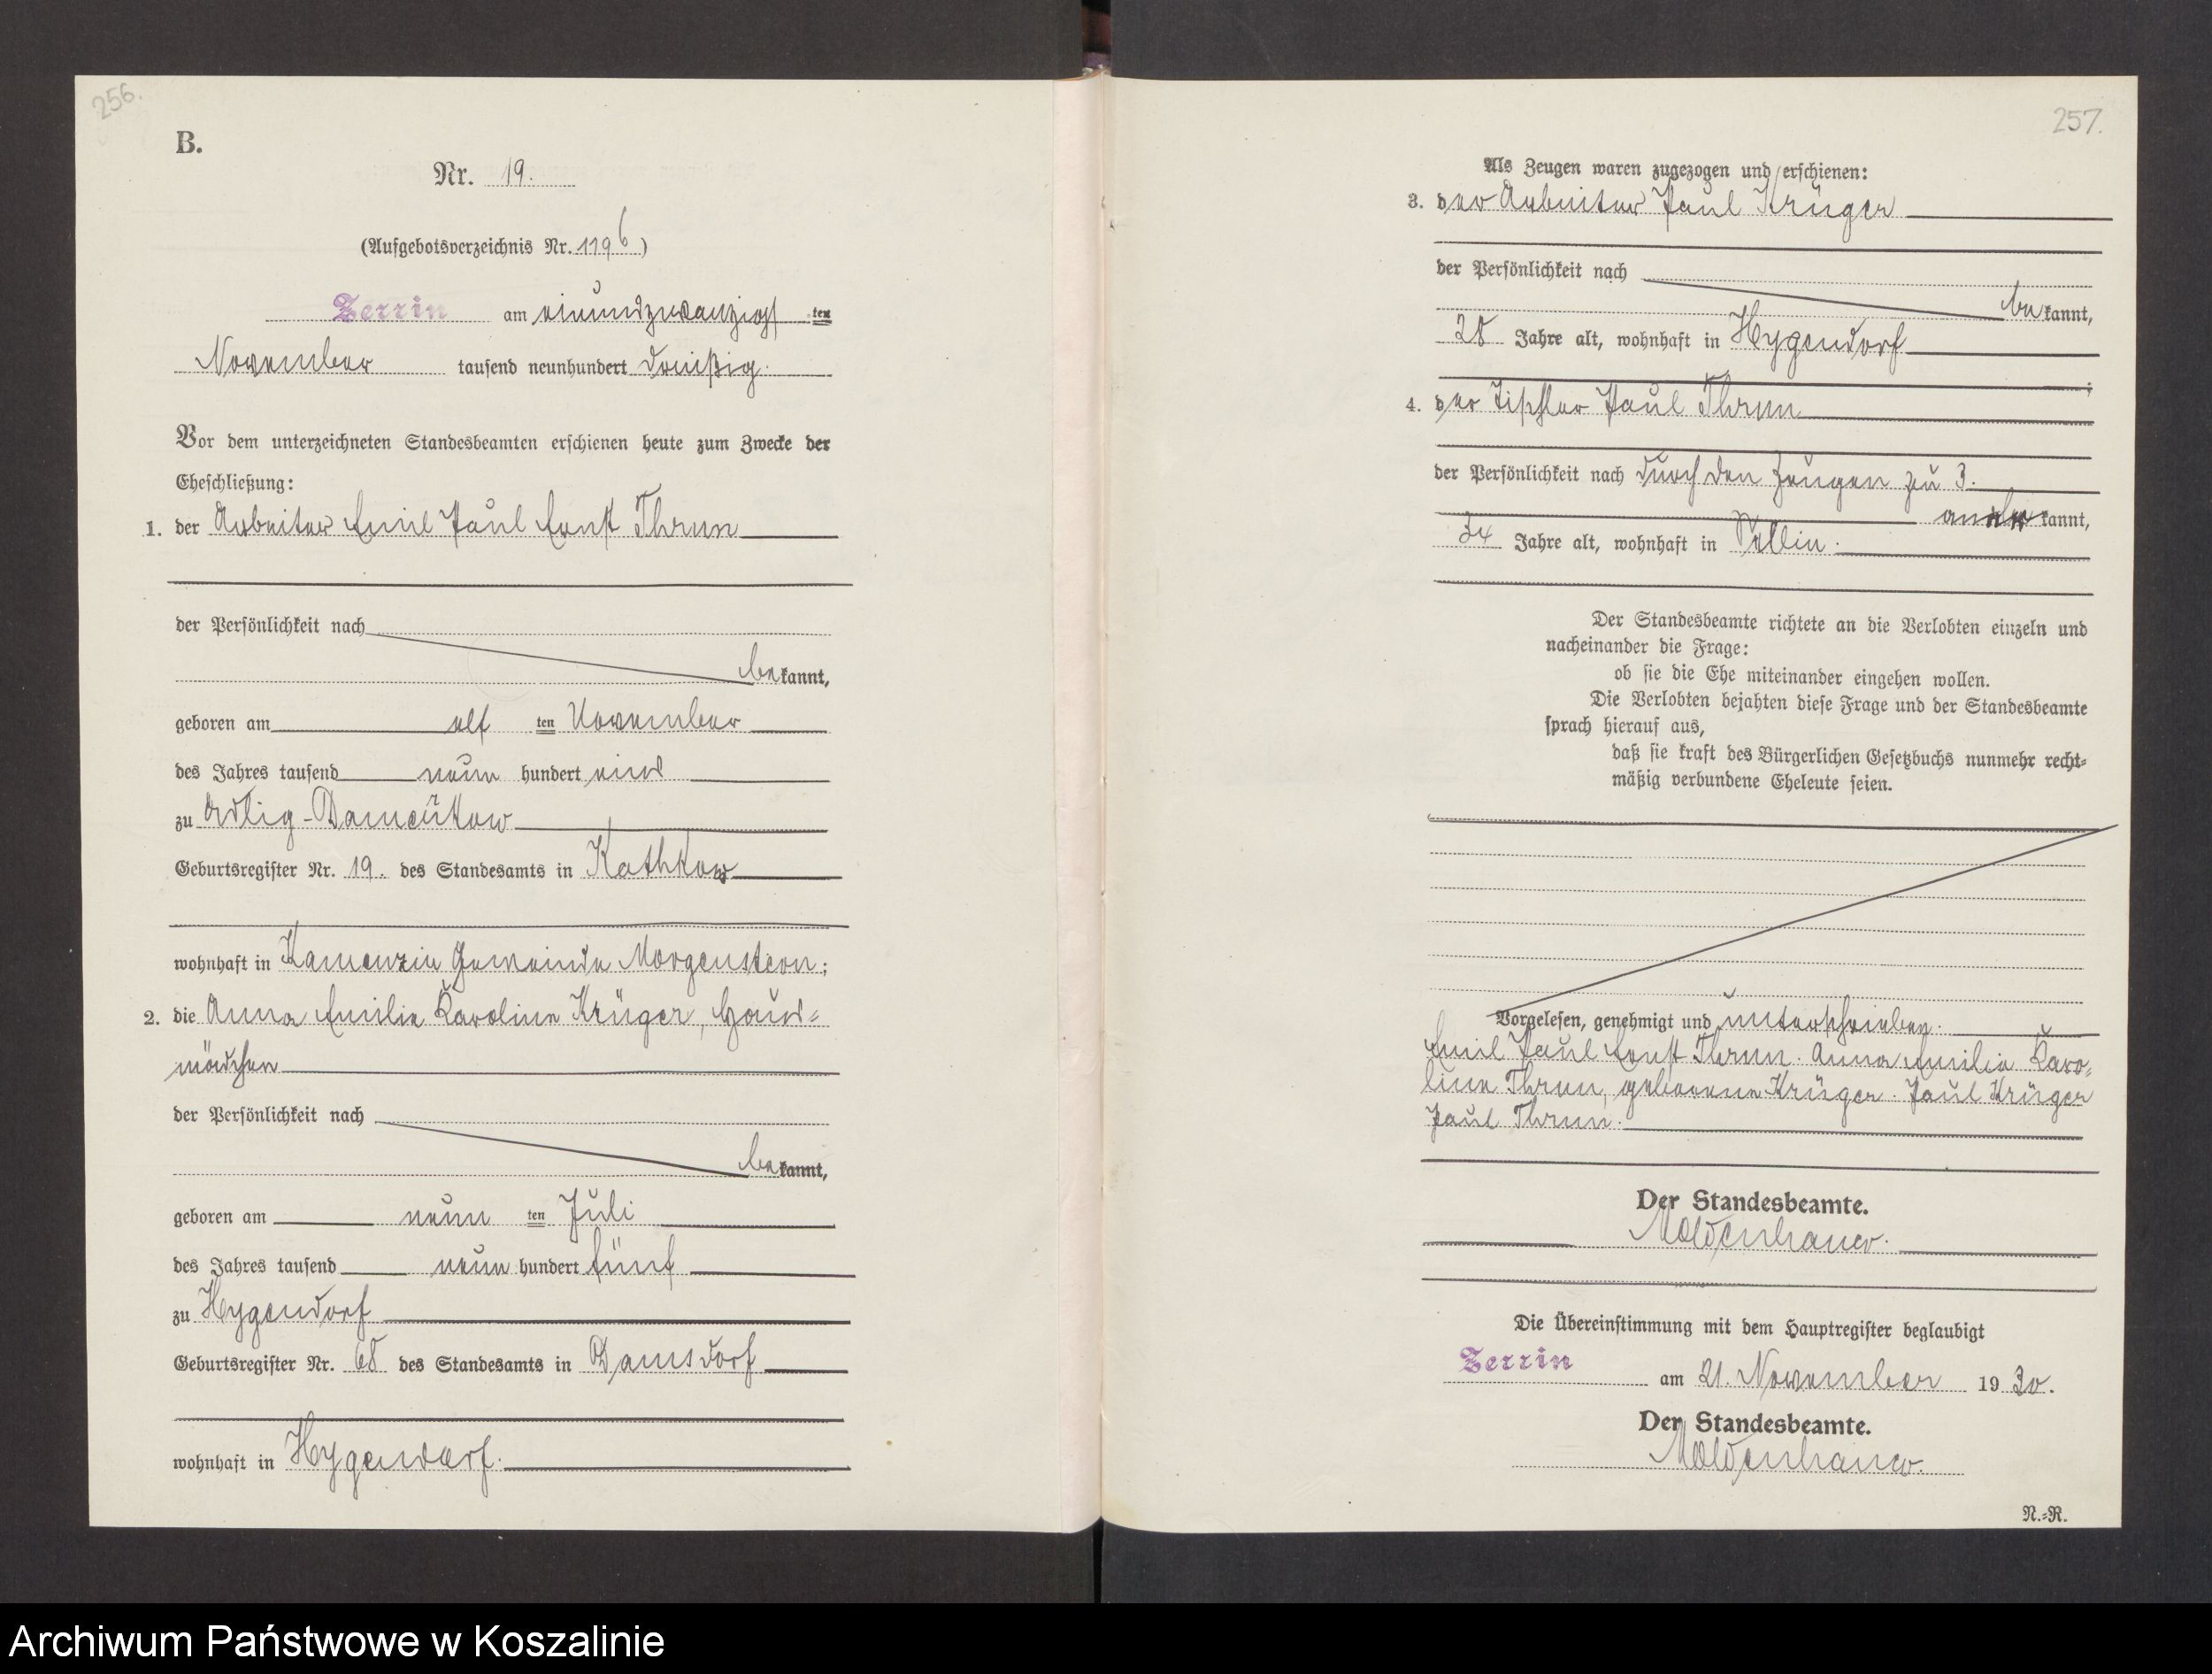 256.
B.
Nr. 19.
(Aufgebotsverzeichnis Nr. 1196)
Zerrin am einundzwanzigsten
November tausend neunhundert dreißig.
Vor dem unterzeichneten Standesbeamten erschienen heute zum Zwecke der
Eheschließung:
1. der Arbeiter Emil Paul Ernst Thrun
der Persönlichkeit nach
bekannt,
geboren am elf ten November
des Jahres tausend neun hundert eins
zu Adlig-Damerkow
Geburtsregister Nr. 19. des Standesamts in Kathkow
wohnhaft in Kamenzin Gemeinde Morgenstern;
2. die Anna Emilie Karoline Krüger, Haus=
mädchen
der Persönlichkeit nach
bekannt,
geboren am neun ten Juli
des Jahres tausend neun hundert fünf
zu Hygendorf
Geburtsregister Nr. 68 des Standesamts in Damsdorf
wohnhaft in Hygendorf.
257.
Als Zeugen waren zugezogen und erschienen:
3. der Arbeiter Paul Krüger
der Persönlichkeit nach
bekannt,
28 Jahre alt, wohnhaft in Hygendorf
;
4. der Tischler Paul Thrun
der Persönlichkeit nach durch den Zeugen zu 3.
anerkannt,
34 Jahre alt, wohnhaft in
Der Standesbeamte richtete an die Verlobten einzeln und
nacheinander die Frage:
ob sie die Ehe miteinander eingehen wollen.
Die Verlobten bejahten diese Frage und der Standesbeamte
sprach hierauf aus,
daß sie kraft des Bürgerlichen Gesetzbuchs nunmehr recht=
mäßig verbundene Eheleute seien.
Vorgelesen, genehmigt und unterschrieben.
Emil Paul Ernst Thrun. Anna Emilie Karo=
line Thrun, geborene Krüger. Paul Krüger
Paul Thrun.
Der Standesbeamte.
Moldenhauer.
Die Übereinstimmung mit dem Hauptregister beglaubigt
Zerrin am 21. November 1930.
Der Standesbeamte.
Moldenhauer.
N.=R.
Archiwum Państwowe w Koszalinie